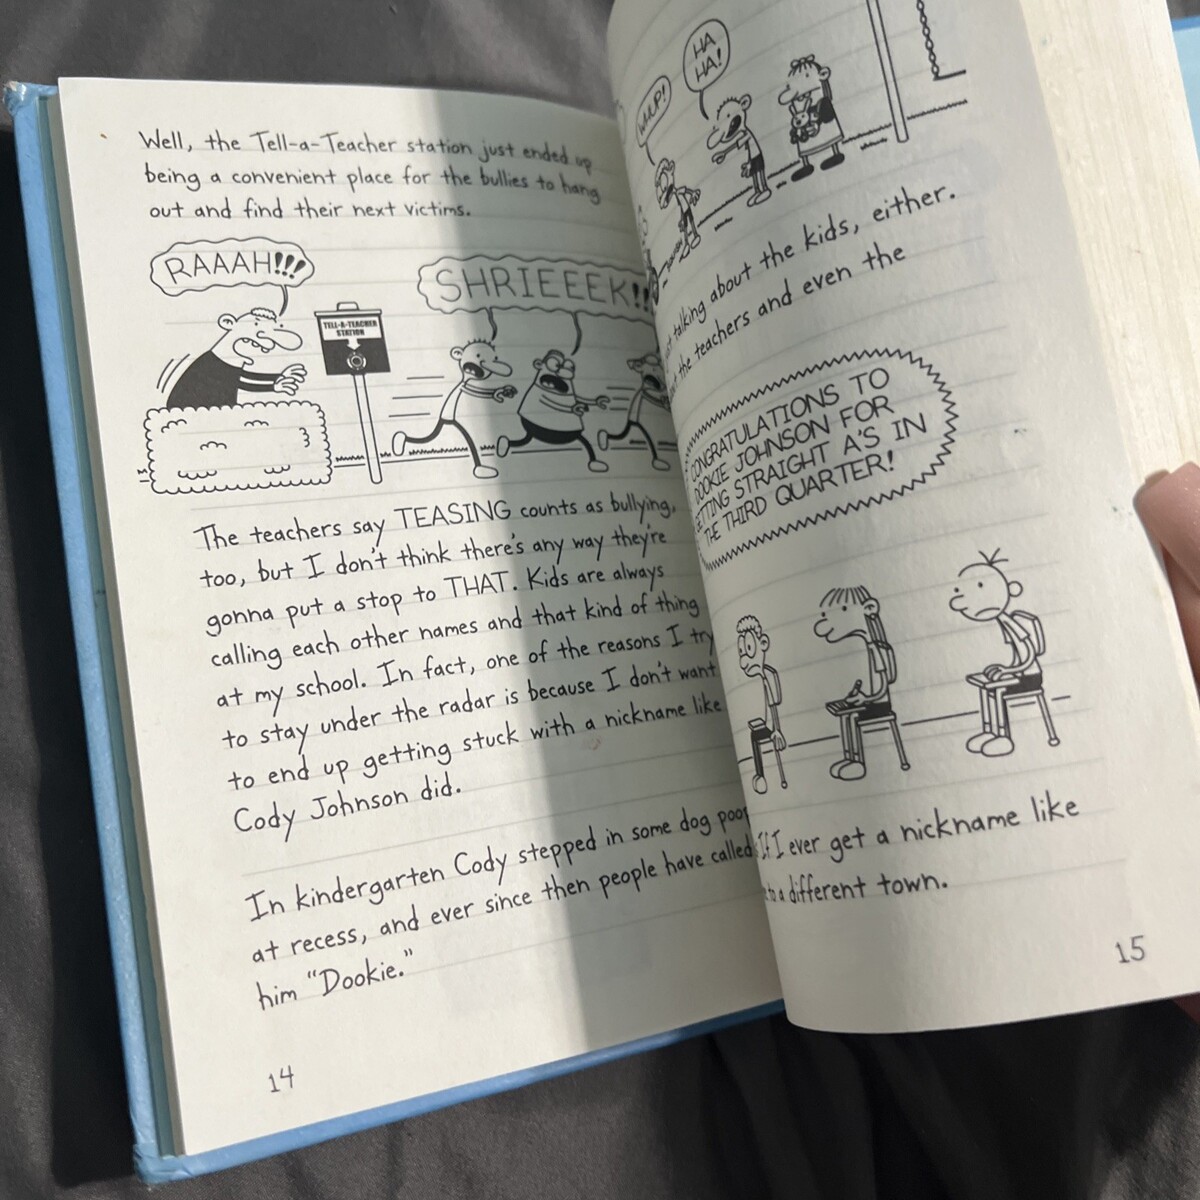 Well, the Tell-a-Teacher station just ended up
being a convenient place for the bullies to hang
out and find their next victims.
RAAAH!!!
SHRIEEEK!!
TELL-A-TEACHER
STATION
The teachers say TEASING counts as bullying,
too, but I don't think there's any way they're
gonna put a stop to THAT. Kids are always
calling each other names and that kind of thing
at my school. In fact, one of the reasons I try
to stay under the radar is because I don't want
to end up getting stuck with a nickname like
Cody Johnson did.
In kindergarten Cody stepped in some dog poop
at recess, and ever since then people have called
him "Dookie."
14
HA
HA!
talking about the kids, either.
the teachers and even the
CONGRATULATIONS TO
DOOKIE JOHNSON FOR
GETTING STRAIGHT A'S IN
THE THIRD QUARTER!
If I ever get a nickname like
to a different town.
15